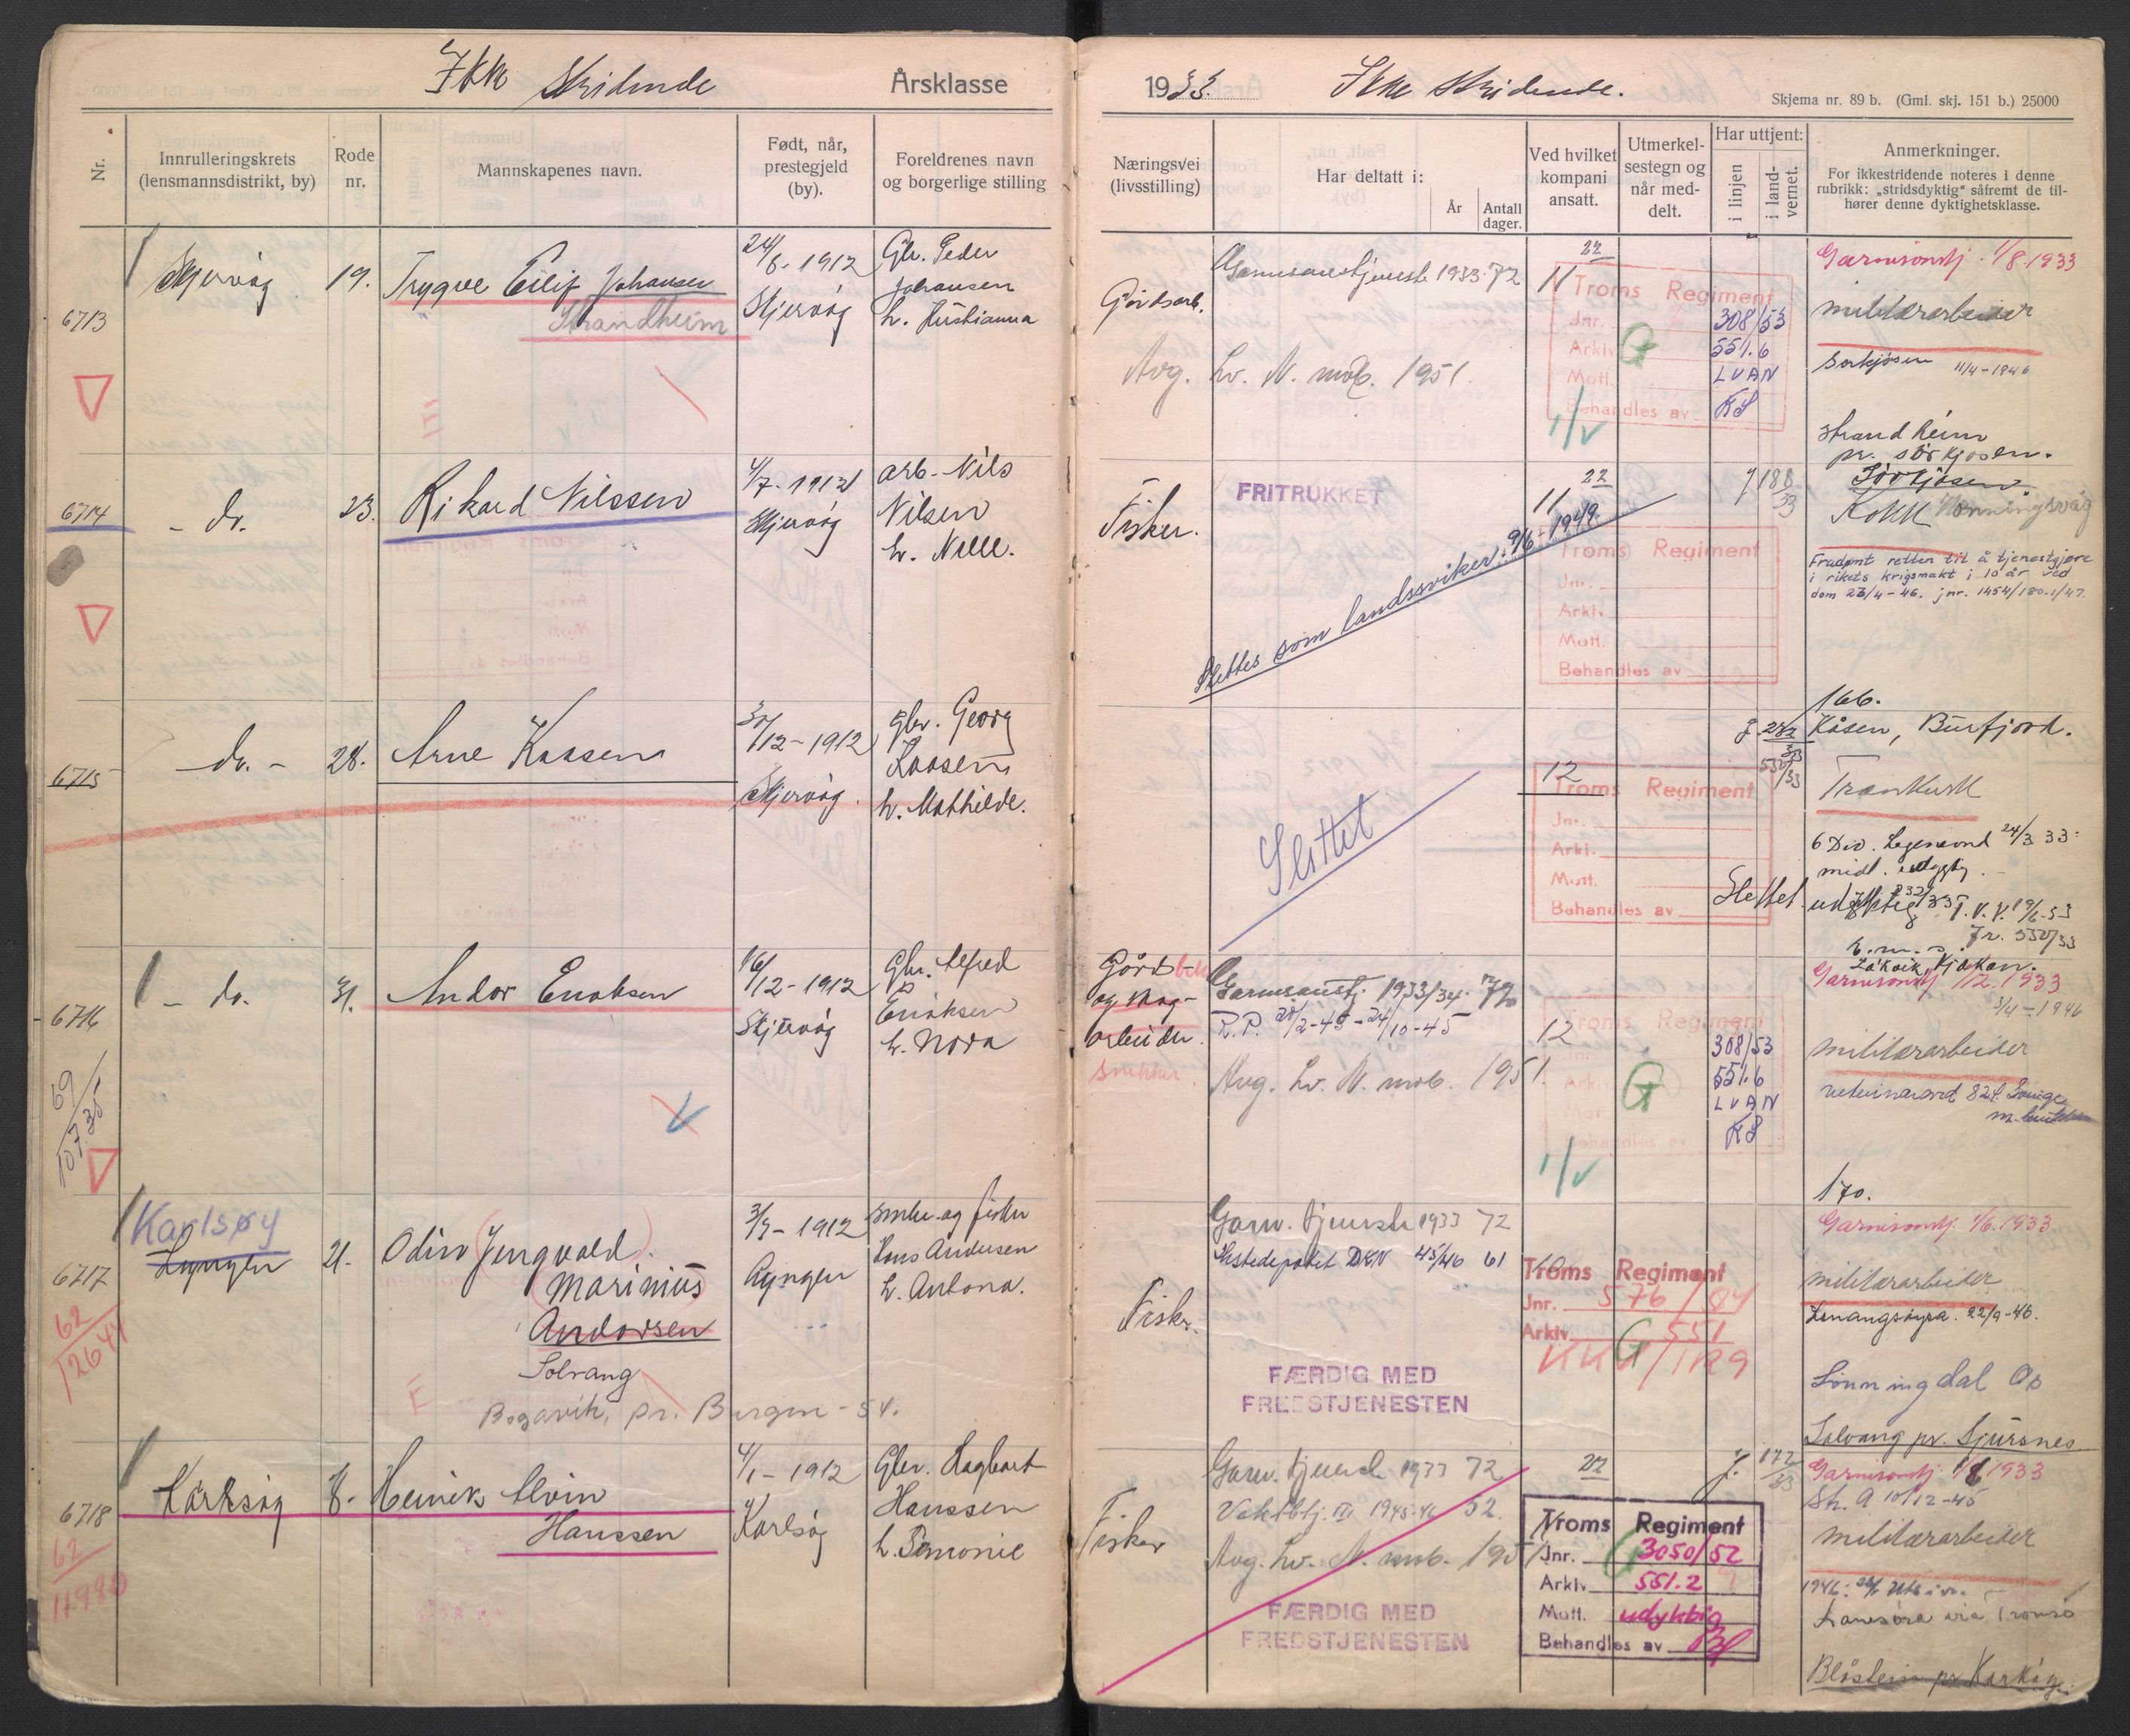 Ikke stridende
Årsklasse
1933.
Ikke stridende.
Skjema nr. 89 b. (Gml. skj. 151 b.) 25000
Nr.
Innrulleringskrets
(lensmannsdistrikt, by)
Rode
nr.
Mannskapenes navn.
Født, når,
prestegjeld
(by).
Foreldrenes navn
og borgerlige stilling
Næringsvei
(livsstilling)
Har deltatt i:
År
Antall
dager.
Ved hvilket
kompani
ansatt.
Utmerkel-
sestegn og
når med-
delt.
Har uttjent:
i linjen
i land-
vernet.
Anmerkninger.
For ikkestridende noteres i denne
rubrikk: „stridsdyktig" såfremt de til-
hører denne dyktighetsklasse.
6713
Skjervøy
19.
Trygve Eilif Johansen
Strandheim
24/8-1912
Skjervøy
Gbr. Peder
Johansen
h. Kristianna
Gårdsarb.
Garnisonstjeneste 1933 72
Avg. Lv. N. mob. 1951.
22
11
Troms Regiment
Jnr. 308/53
Arkiv 551.6
Mott. LVAN
Behandles av KS
G
Garnisonstj. 1/8 1933
militærarbeider
Sørkjosen 11/4-1946
Strandheim
pr. Sørkjosen.
6714
- do.
23.
Rikard Nilssen
4/7-1912
Skjervøy
arb. Nils
Nilsen
h. Nille.
Fisker.
FRITRUKKET
Slettes som landssviker. 9/6-1949
22
11
Troms Regiment
Jnr.
Arki.
Mott.
Behandles av
J 188/33
Sørkjosen
Kokk Honningsvåg
Fradømt retten til å tjenestgjøre
i rikets krigsmakt i 10 år ved
dom 23/4-46. jnr. 1454/180-1/47.
6715
do. -
28.
Arne Kaasen
30/12-1912
Skjervøy.
gbr. Georg
Kaasen
h. Mathilde.
Slettet
12
Troms Regiment
Jnr.
Arki.
Mott.
Behandles av
530/33
166.
Kåsen, Burfjord.
Trænkusk
6 Div. Legenevnd 24/3 33:
Slettet
6716
- do.
31.
Andor Eriksen
16/12-1912
Skjervøy
Gbr. Alfred
Eriksen
h. Nora
Gårds-
og skog-
arbeider.
snekker.
Garnisonstj. 1933/34. 72
R.P. 28/2-45-24/10-45
Avg. Lv. N. mob. 1951.
12
Troms Regiment
308/53
551.6
LVAN
KS
G
Garnisonstj. 1/12. 1933
3/4-1946
militærarbeider
69
10735
6717
Karlsøy
Lyngen
21.
Odin Jengvald
Marinius
Andorsen
Solvang
Bogavik, pr. Bergen-54.
3/9-1912
Lyngen
småbr. og fisker
Hans Andersen
h. Antona.
Fisker.
Garn. tjeneste 1933 72
DKN 45/46 61
FÆRDIG MED
FREDSTJENESTEN
Troms Regiment
Jnr. 576/54
Arkiv 551
G
170.
Garnisonstj. 1/6. 1933
militærarbeider
Lenangsøyra. 22/9-46.
Lønningdal Os
Solvang pr. Sjursnes
62
12644
6718
Karlsøy
8.
Henrik Alvin
Hanssen
4/1-1912
Karlsøy
Gbr. Hagbart
Hanssen
h. Pernonie
Fisker
Garn. tjeneste 1933 72
Vaktbtj. 1945-46 52.
Avg. Lv. N. mob. 1951
FÆRDIG MED
FREDSTJENESTEN
22
Troms Regiment
Jnr. 3050/52
Arkiv 551.2
Mott. udyktig
Behandles av
J. 172/33
Garnisonstj. 1/8 1933
Sk. A 10/12-45
militærarbeider
62
11980